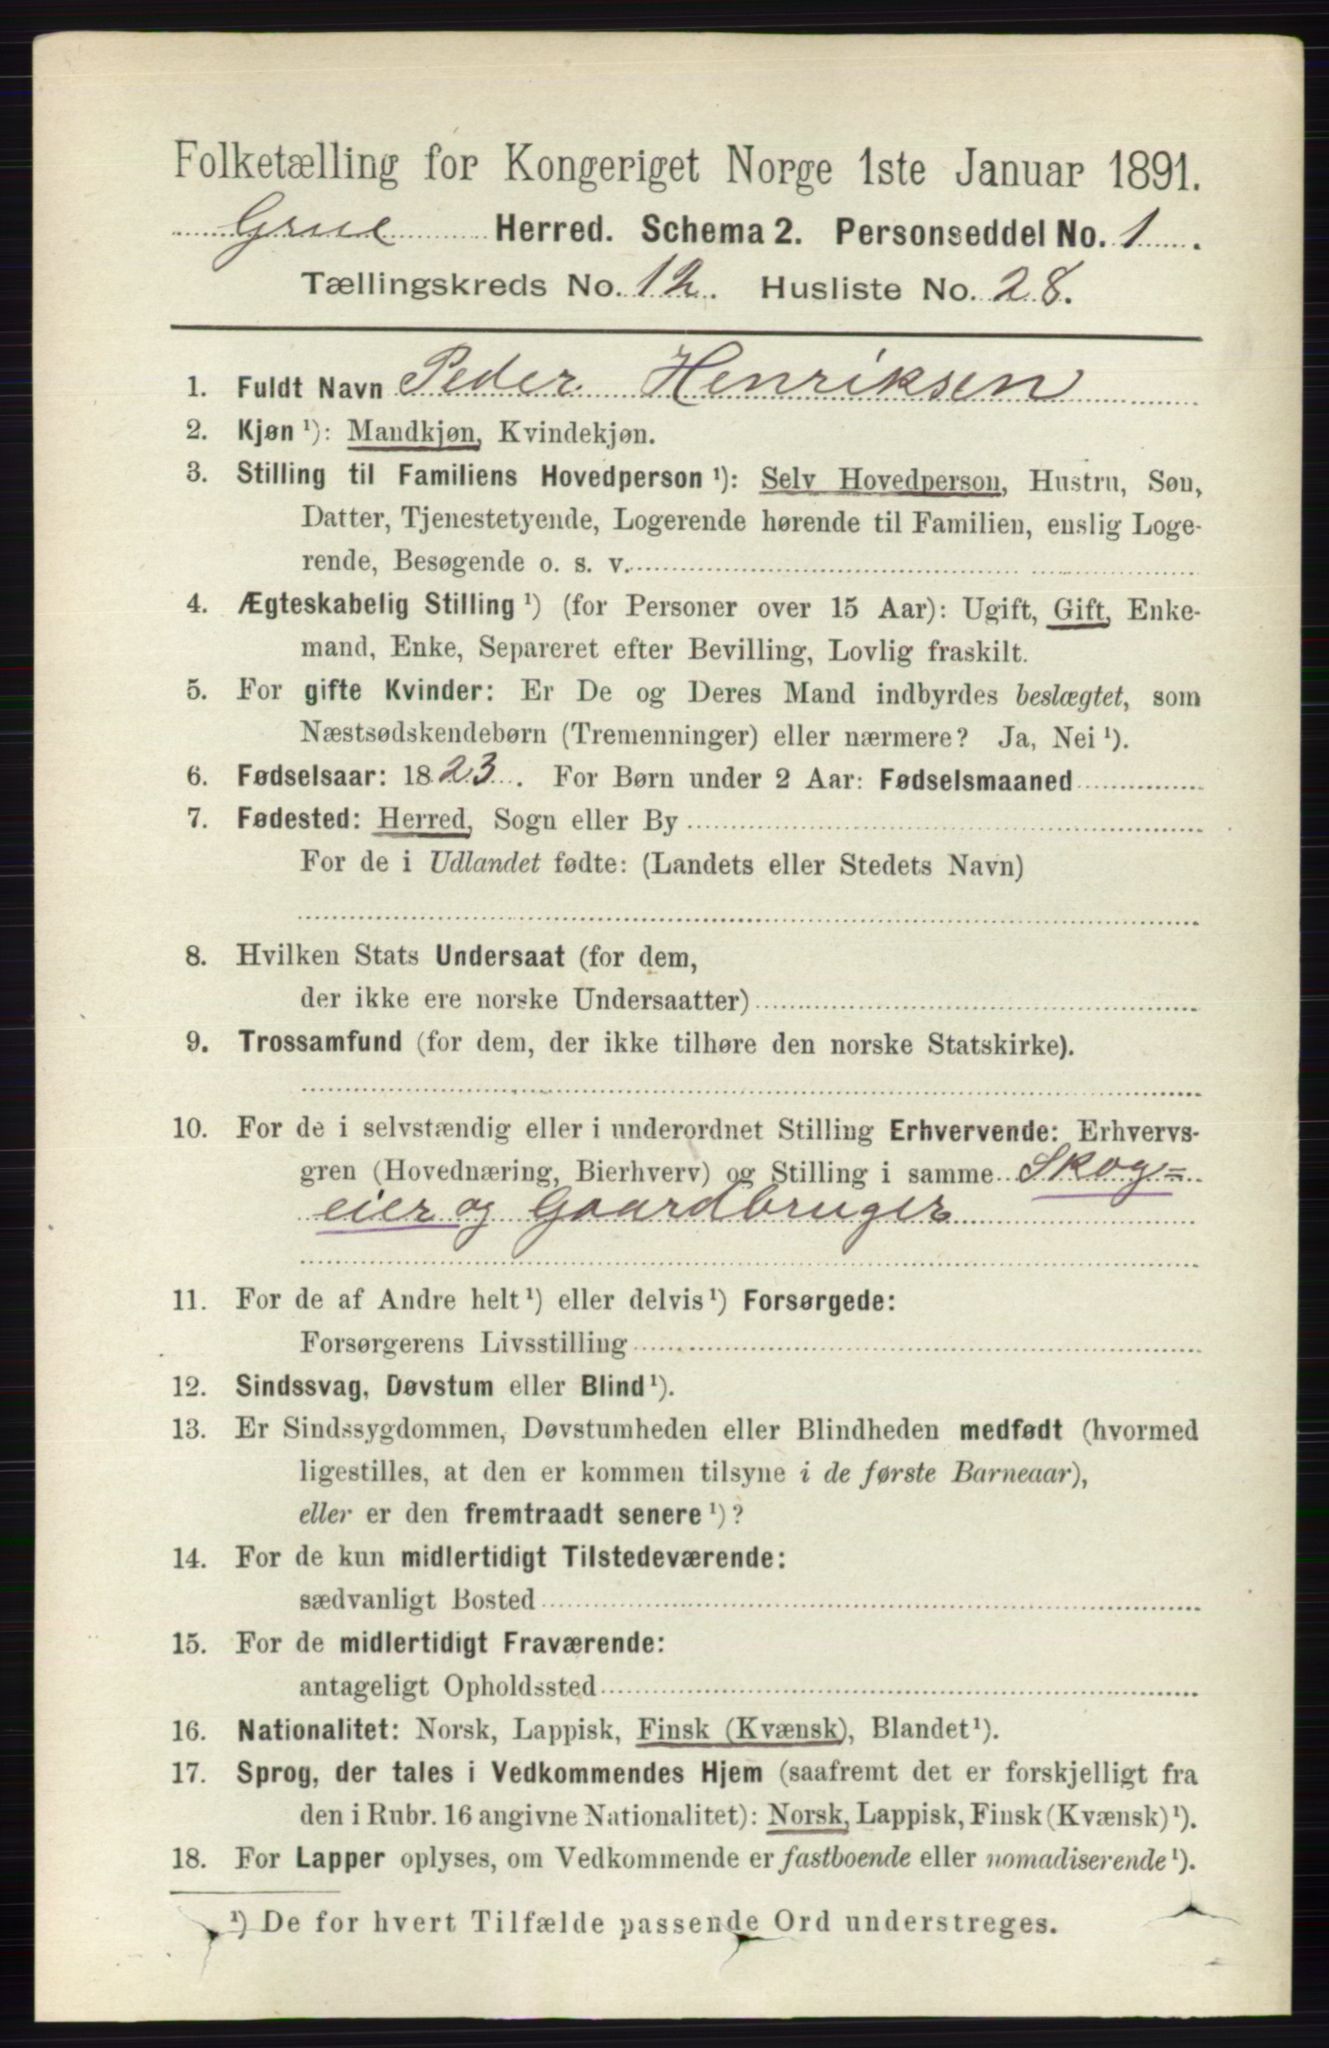 Folketælling for Kongeriget Norge 1ste Januar 1891.
Grue Herred. Schema 2. Personseddel No. 1.
Tællingskreds No. 12. Husliste No. 28.
1. Fuldt Navn Peder Henriksen
2. Kjøn ¹): Mandkjøn, Kvindekjøn.
3. Stilling til Familiens Hovedperson ¹): Selv Hovedperson, Hustru, Søn,
Datter, Tjenestetyende, Logerende hørende til Familien, enslig Loge-
rende, Besøgende o. s. v.
4. Ægteskabelig Stilling ¹) (for Personer over 15 Aar): Ugift, Gift, Enke-
mand, Enke, Separeret efter Bevilling, Lovlig fraskilt.
5. For gifte Kvinder: Er De og Deres Mand indbyrdes beslægtet, som
Næstsødskendebørn (Tremenninger) eller nærmere? Ja, Nei ¹).
6. Fødselsaar: 1823. For Børn under 2 Aar: Fødselsmaaned
7. Fødested: Herred, Sogn eller By
For de i Udlandet fødte: (Landets eller Stedets Navn)
8. Hvilken Stats Undersaat (for dem,
der ikke ere norske Undersaatter)
9. Trossamfund (for dem, der ikke tilhøre den norske Statskirke).
10. For de i selvstændig eller i underordnet Stilling Erhvervende: Erhvervs-
gren (Hovednæring, Bierhverv) og Stilling i samme Skog=
eier og Gaardbruger
11. For de af Andre helt ¹) eller delvis ¹) Forsørgede:
Forsørgerens Livsstilling
12. Sindssvag, Døvstum eller Blind ¹).
13. Er Sindssygdommen, Døvstumheden eller Blindheden medfødt (hvormed
ligestilles, at den er kommen tilsyne i de første Barneaar),
eller er den fremtraadt senere ¹)?
14. For de kun midlertidigt Tilstedeværende:
sædvanligt Bosted
15. For de midlertidigt Fraværende:
antageligt Opholdssted
16. Nationalitet: Norsk, Lappisk, Finsk (Kvænsk), Blandet ¹).
17. Sprog, der tales i Vedkommendes Hjem (saafremt det er forskjelligt fra
den i Rubr. 16 angivne Nationalitet): Norsk, Lappisk, Finsk (Kvænsk) ¹).
18. For Lapper oplyses, om Vedkommende er fastboende eller nomadiserende ¹).
¹) De for hvert Tilfælde passende Ord understreges.